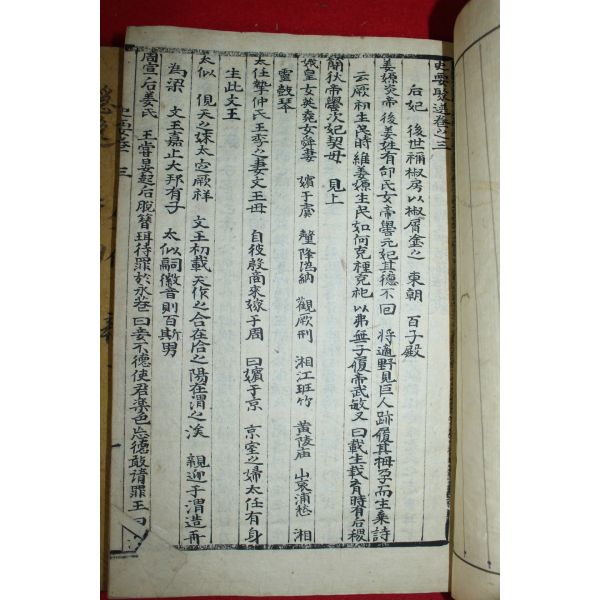 史要聚選卷之三
后妃 後世稱椒房以椒屑塗之 東朝 百子殿
姜嫄炎帝後姜姓有邰氏女帝嚳元妃其德不回 將適野見巨人跡履其拇孕而生棄詩
云厥初生民時維姜嫄生民如何克禋克祀以弗無子履帝武敏又曰載生載育時有后稷
簡狄帝嚳次妃契母 見上
娥皇女英堯女舜妻 嬪于虞 釐降溈納 觀厥刑 湘江班竹 黃陵庙 山哀浦愁 湘
靈鼓琴
太任摯仲氏王季之妻文王母 自彼殷商來嫁于周 曰嬪于京 京室之婦太任有身
生此文王
太似 俔天之妹太姒厥祥 文王初載天作之合在洽之陽在渭之涘 親迎于渭造舟
為梁 文王嘉止大邦有子 太似嗣徽音則百斯男
周宣后姜氏 王嘗晏起后脫簪珥待罪於永巷曰妾不德使君楽色忘德敢請罪王曰